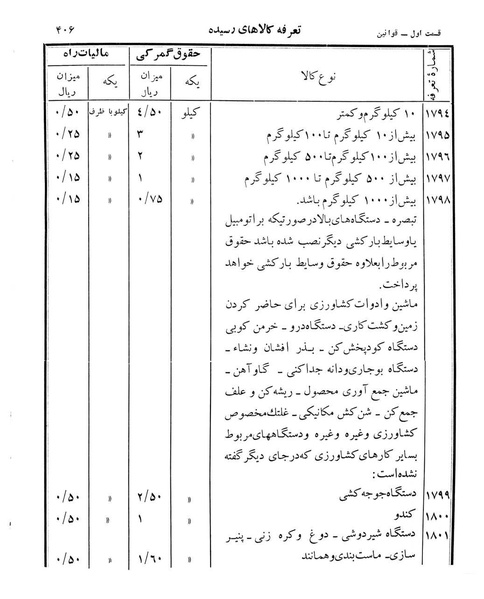 قسمت اول ـ قوانین تعرفه کالاهای رسیده ۴۰۶
شمارهٔ تعرفه نوع کالا حقوق گمرکی مالیات راه
یکه میزان ریال یکه میزان ریال
۱۷۹۴ ۱۰ کیلوگرم و کمتر کیلو ۴/۵۰ کیلو با ظرف ۰/۵۰
۱۷۹۵ بیش از ۱۰ کیلوگرم تا ۱۰۰ کیلوگرم » ۳ » ۰/۲۵
۱۷۹۶ بیش از ۱۰۰ کیلوگرم تا ۵۰۰ کیلوگرم » ۲ » ۰/۲۵
۱۷۹۷ بیش از ۵۰۰ کیلوگرم تا ۱۰۰۰ کیلوگرم » ۱ » ۰/۱۵
۱۷۹۸ بیش از ۱۰۰۰ کیلوگرم باشد. » ۰/۷۵ » ۰/۱۵
تبصره ـ دستگاه‌های بالا در صورتیکه بر اتومبیل
یا وسایط بارکشی دیگر نصب شده باشد حقوق
مربوط را بعلاوه حقوق وسایط بارکشی خواهد
پرداخت.
ماشین و ادوات کشاورزی برای حاضر کردن
زمین و کشت کاری ـ دستگاه درو ـ خرمن کوبی
دستگاه کود پخش کن ـ بذر افشان و نشاء ـ
دستگاه بوجاری و دانه جداکنی ـ گاو آهن ـ
ماشین جمع آوری محصول ـ ریشه کن و علف
جمع کن ـ شن کش مکانیکی ـ غلتك مخصوص
کشاورزی وغیره وغیره و دستگاههای مربوط
بسایر کارهای کشاورزی که در جای دیگر گفته
نشده است:
۱۷۹۹ دستگاه جوجه کشی » ۲/۵۰ » ۰/۵۰
۱۸۰۰ کندو » ۱ » ۰/۵۰
۱۸۰۱ دستگاه شیردوشی ـ دوغ و کره زنی ـ پنیر
سازی ـ ماست بندی و همانند » ۱/۶۰ » ۰/۵۰